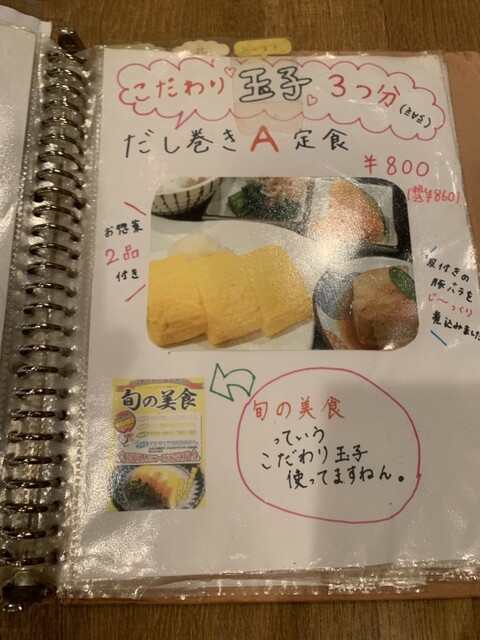 こだわり 玉子 3つ分
だし巻き A 定食
¥800
税込¥860
お惣菜
2品
付き
豚バラを
じ〜っくり
煮込みました
旬の美食
旬の美食
っていう
こだわり玉子
使ってますねん。